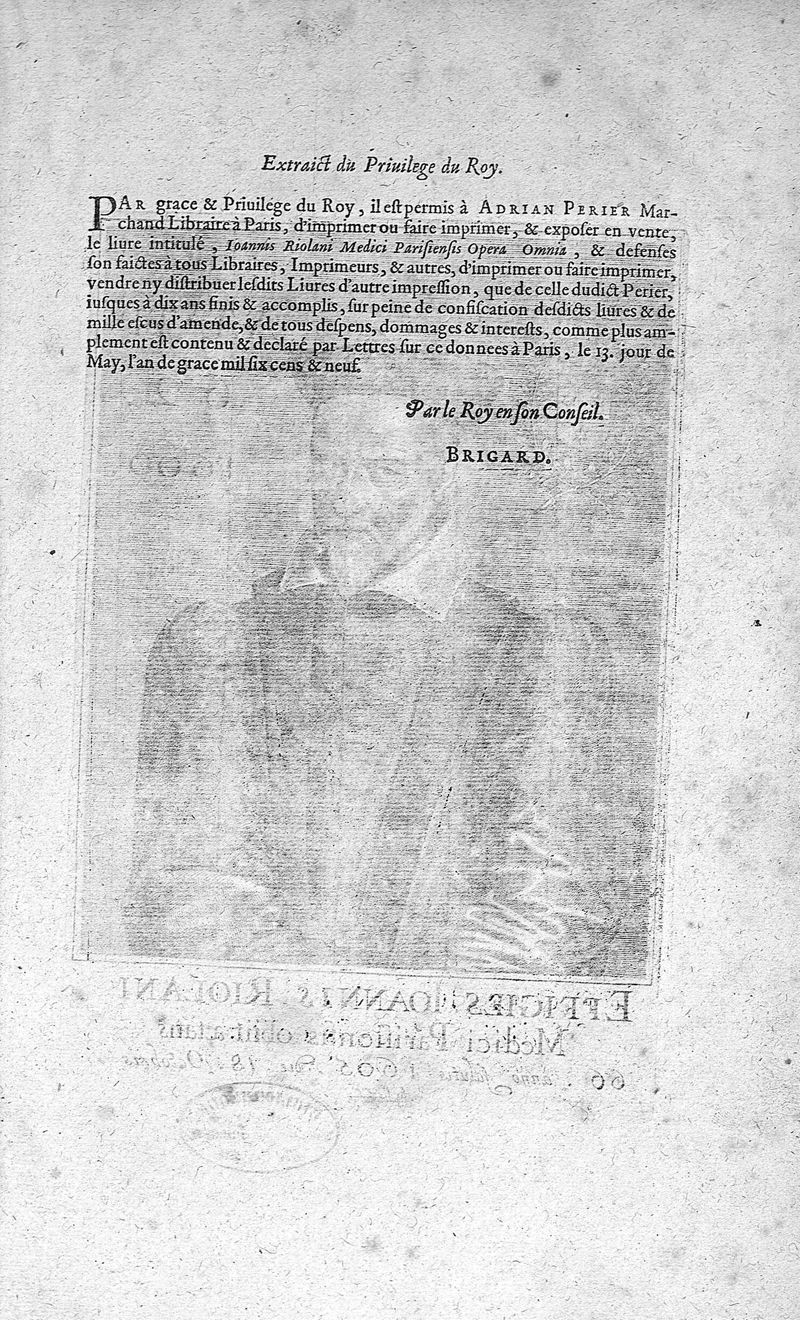 Extraict du Priuilege du Roy.
PAR grace & Priuilege du Roy, il est permis à ADRIAN PERIER Mar-
chand Libraire à Paris, d'imprimer ou faire imprimer, & exposer en vente,
le liure intitulé, Ioannis Riolani Medici Parisiensis Opera Omnia, & defenses
son faictes à tous Libraires, Imprimeurs, & autres, d'imprimer ou faire imprimer,
vendre ny distribuer lesdits Liures d'autre impression, que de celle dudict Perier,
iusques à dix ans finis & accomplis, sur peine de confiscation desdicts liures & de
mille escus d'amende, & de tous despens, dommages & interests, comme plus am-
plement est contenu & declaré par Lettres sur ce donnees à Paris, le 13. jour de
May, l'an de grace mil six cens & neuf.
Par le Roy en son Conseil.
BRIGARD.
EFFIGIES IOANNIS RIOLANI
Medici Parisiensis obiit ætatis
60 anno salutis 1605 18 Octobris